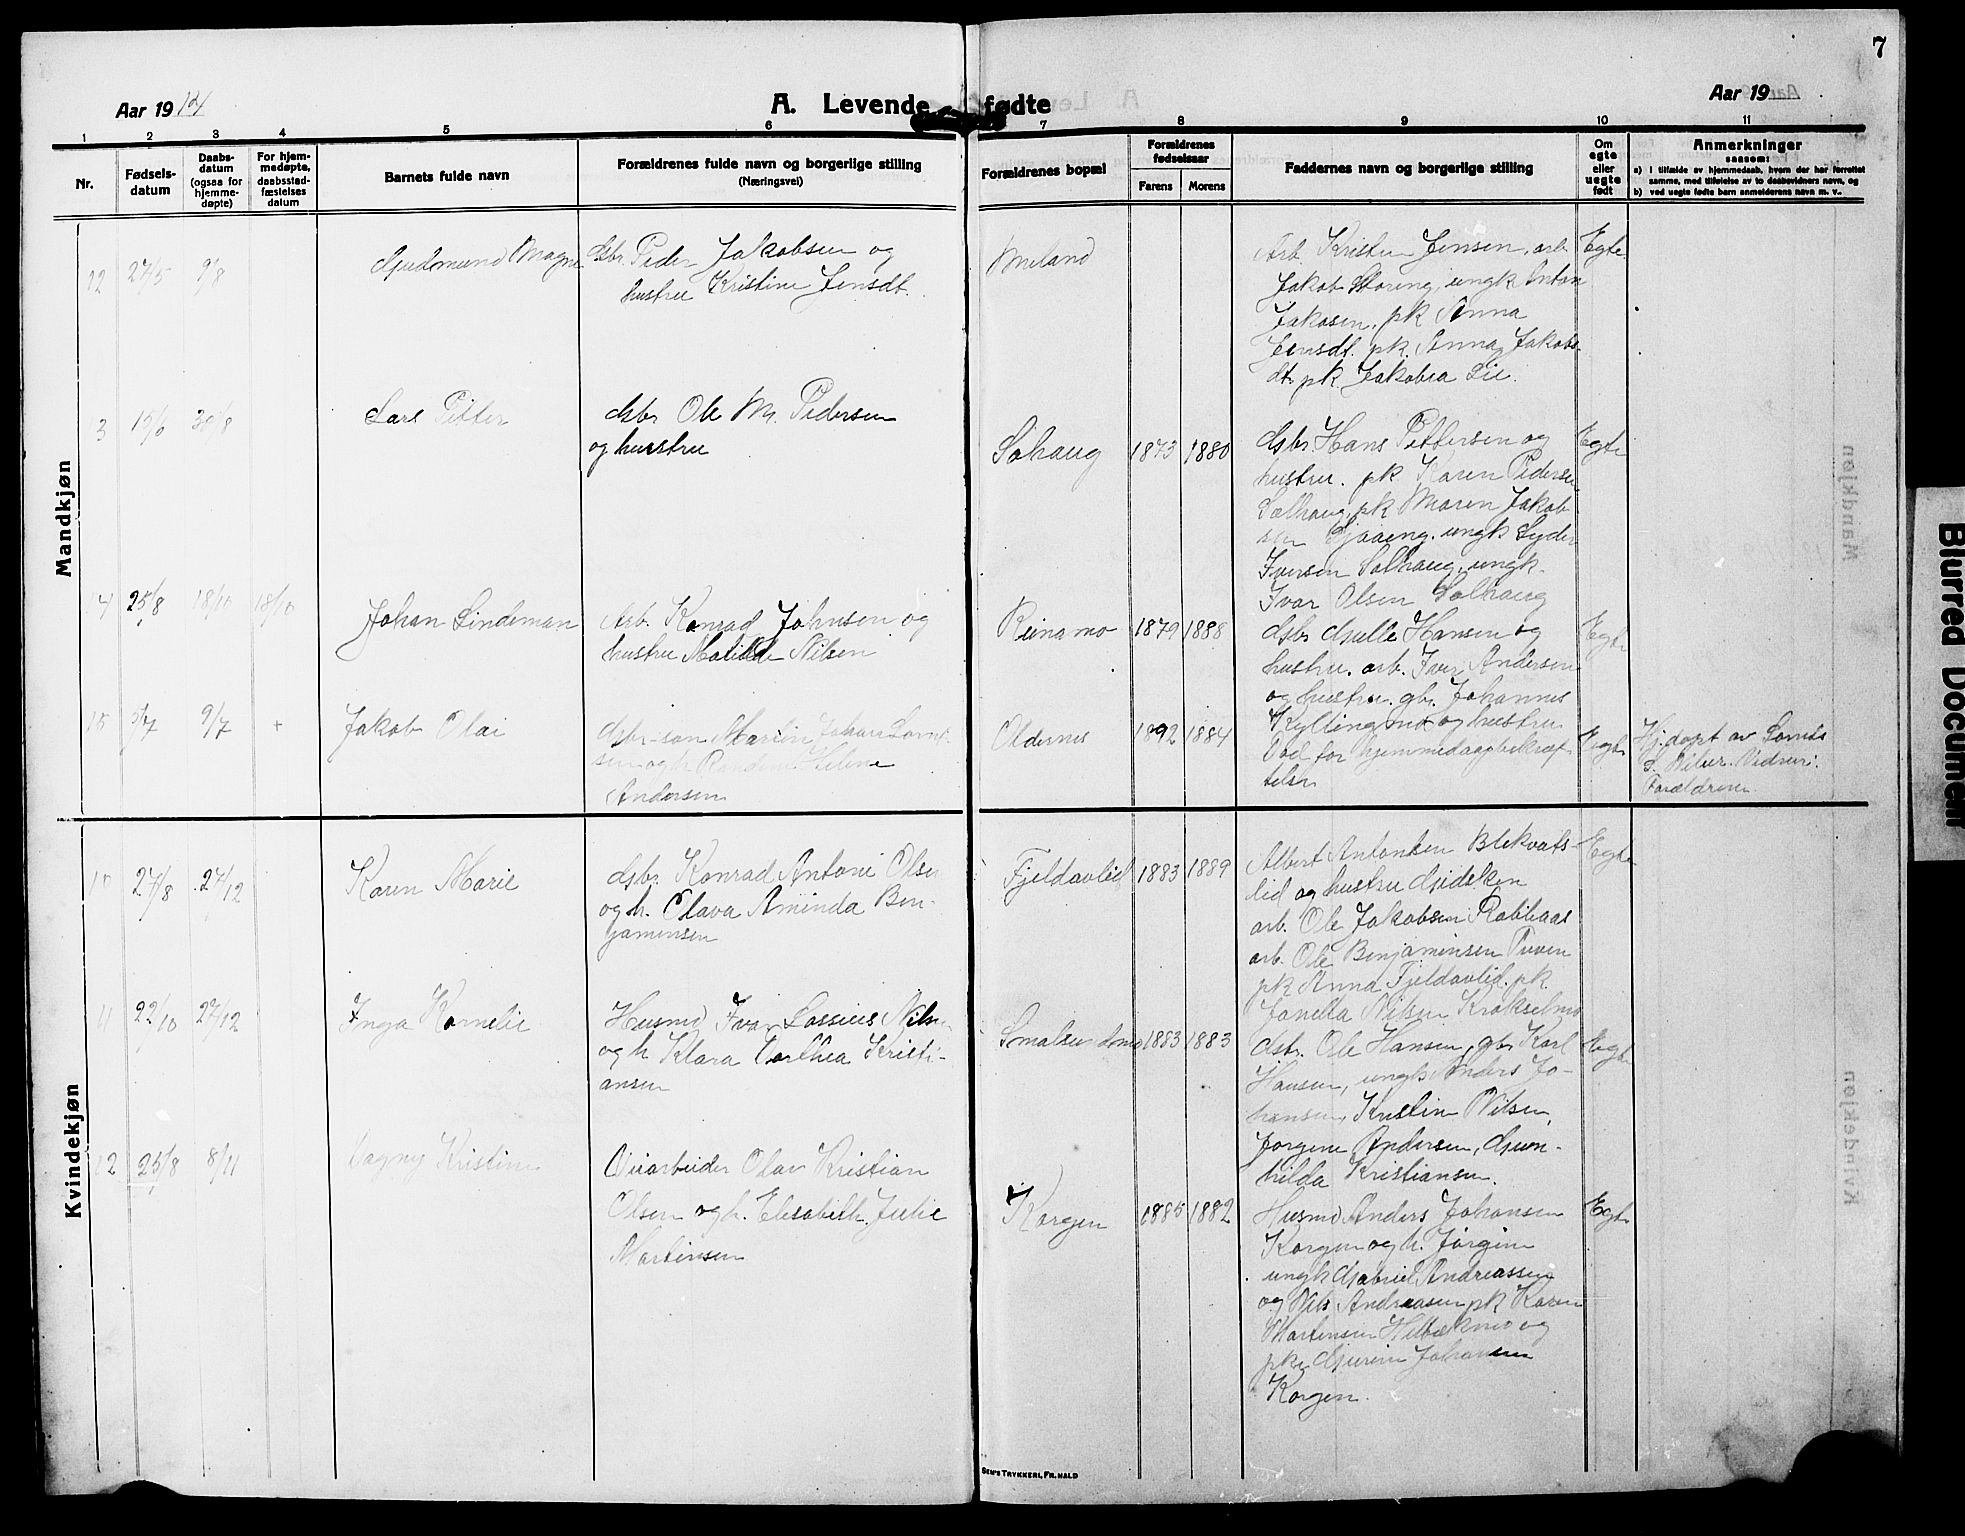 7
Aar 1914
A. Levende fødte
Aar 19
1 2 3 4 5 6 7 8 9 10 11
Nr.
Fødsels-
datum
Daabs-
datum
(ogsaa for
hjemme-
døpte)
For hjem-
medøpte,
daabsstad-
fæstelses
datum
Barnets fulde navn
Forældrenes fulde navn og borgerlige stilling
(Næringsvei)
Forældrenes bopæl
Forældrenes
fødselsaar
Farens Morens
Faddernes navn og borgerlige stilling
Om
egte
eller
uegte
født
Anmerkninger
saasom:
a) I tilfælde av hjemmedaab, hvem der har forrettet
samme, med tilføielse av to daabsvidners navn, og
b) ved uegte fødte barn anmelderens navn m. v.
Mandkjøn
12 27/5 9/8
Gudmund Magne
Gsbr. Peder Jakobsen og
hustru Kristine Jensdt.
Arb. Kristen Jensen, arb.
Jakob Storeng, ungk Anton
Jakosen, pk Anna
Jensdt. pk. Anna Jakobs-
dt. pk Jakobea Lie.
Egte
13
Lars Petter
Gsbr Ole M. Pedersen
og hustru
1873 1880
Gsbr Hans Pettersen og
hustru. pk Karen Pedersen
pk Maren Jakob
sen ungk
Iversen Solhaug, ungk.
Ivar Olsen Solhaug
Egte
14 25/8 18/10 18/10
Johan Lindeman
Arb. Konrad Johnsen og
hustru Matilde Nilsen
1879 1888
Gsbr Hansen og
hustru. arb. Iver Andersen
og hustru. gbr. Johannes
Kyllingmo og hustru
Egte
15 5/7 9/7 +
Jakob Olai
Gsbr.-søn Martin Johan
sen og h Randine Heline
Andersen
Oldernes
1892 1884
Vad for hjemmedaapbekræf-
telsen
Egte
Hj. døpt av
Forældrene
Kvindekjøn
10 27/8 27/12
Karen Marie
Gsbr. Konrad Antoni Olsen
og h. Olava Aminda Ben-
jaminsen
Fjeldavlid
1883 1889
Albert Antonsen Blekvats-
lid og hustru
arb. Ole Jakobsen
arb. Ole Benjaminsen Tuven
pk Anna Fjeldavlid. pk
Janetta Nilsen Krokselmo
Egte
11 22/10 27/12
Inga Kornelie
Husmd Ivar Lossius Nilsen
og h Klara Dorthea Kristi-
ansen
1883 1883
Gsbr. Ole Hansen, gbr Karl
Hansen, ungk Anders Jo-
hansen, Kristin Nilsen,
Jørgine Andersen, Gun-
hilda Kristiansen.
Egte
12 25/8 8/11
Dagny Kristine
Veiarbeider Olav Kristian
Olsen og h. Elisabeth Julie
Martinsen
Korgen
1885 1882
Husmd Anders Johansen
Korgen og h. Jørgine
ungk Gabriel Andreassen
og Nils Andreasen pk Karen
Martinsen og
pk Johansen
Korgen.
Egte
SEN'S TRYKKERI, FR.HALD
Blurred Document